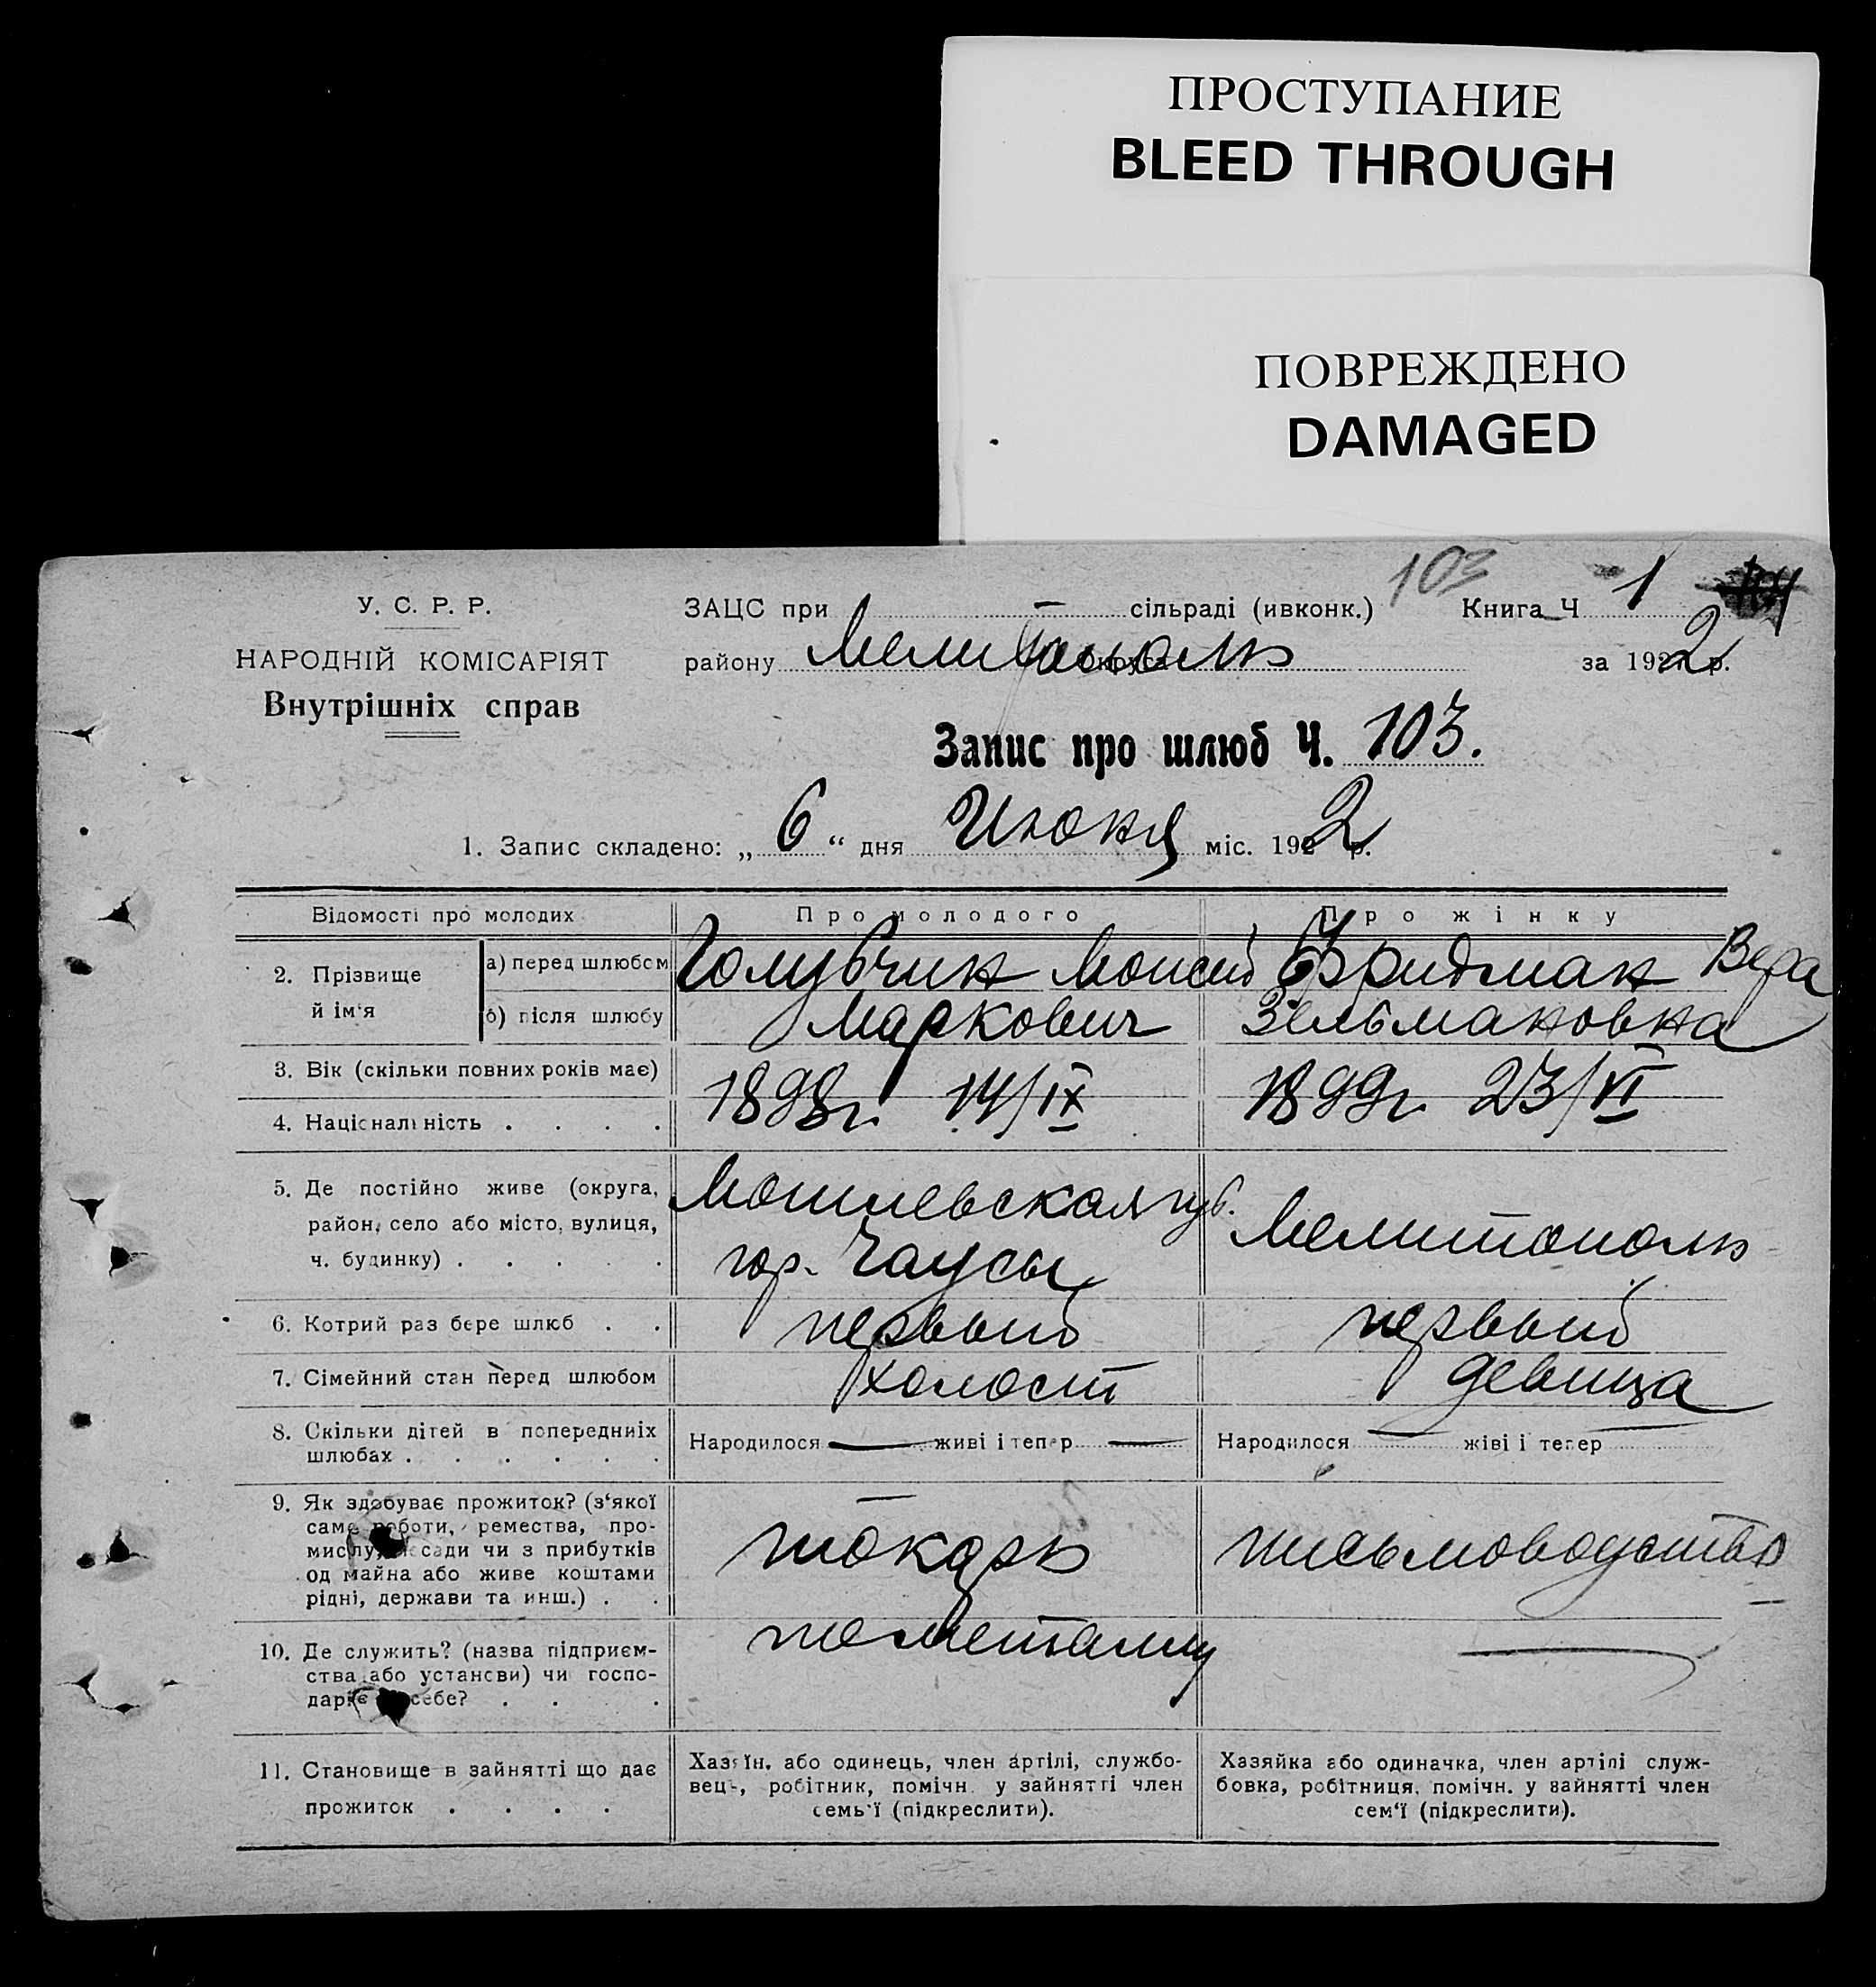 ПРОСТУПАНИЕ
BLEED THROUGH
ПОВРЕЖДЕНО
DAMAGED
103
У. С. Р. Р.
НАРОДНІЙ КОМІСАРІЯТ
Внутрішніх справ
ЗАЦС при — сільраді (ивконк.) Книга Ч 1
району Мелитополь округа за 1922 р.
Запис про шлюб Ч. 103.
1. Запис складено: „ 6 “ дня Июня міс. 1922 р.
Відомості про молодих Про молодого Про жінку
2. Прізвище й ім'я
а) перед шлюбом Голубчик Моисей Фридман Вера
б) після шлюбу Маркович Зельмановна
3. Вік (скільки повних років має)
1898 г. 14/IX 1899 г. 23/VI
4. Національність . . . .
5. Де постійно живе (округа, Могилевская губ.
район, село або місто, вулиця, Мелитополь
ч. будинку) . . . . . гор. Чаусы
6. Котрий раз бере шлюб . . первый первый
7. Сімейний стан перед шлюбом холост девица
8. Скільки дітей в попередниіх
шлюбах . . . . . . Народилося — живі і тепер — Народилося — жіві і тепер
9. Як здобуває прожиток? (з'якої
саме роботи, ремества, про-
мислу, посади чи з прибутків токарь письмоводство
од майна або живе коштами
рідні, держави та инш.) . .
10. Де служить? (назва підприєм- по металлу —
ства або установи) чи госпо-
дарює себе? . . .
11. Становище в зайнятті що дає
прожиток . . . .
Хазяїн. або одинець, член артілі, службо-
вець, робітник, помічн. у зайнятті член
семь'ї (підкреслити).
Хазяйка або одиначка, член артілі служ-
бовка, робітниця, помічн. у зайнятті член
сем'ї (підкреслити).